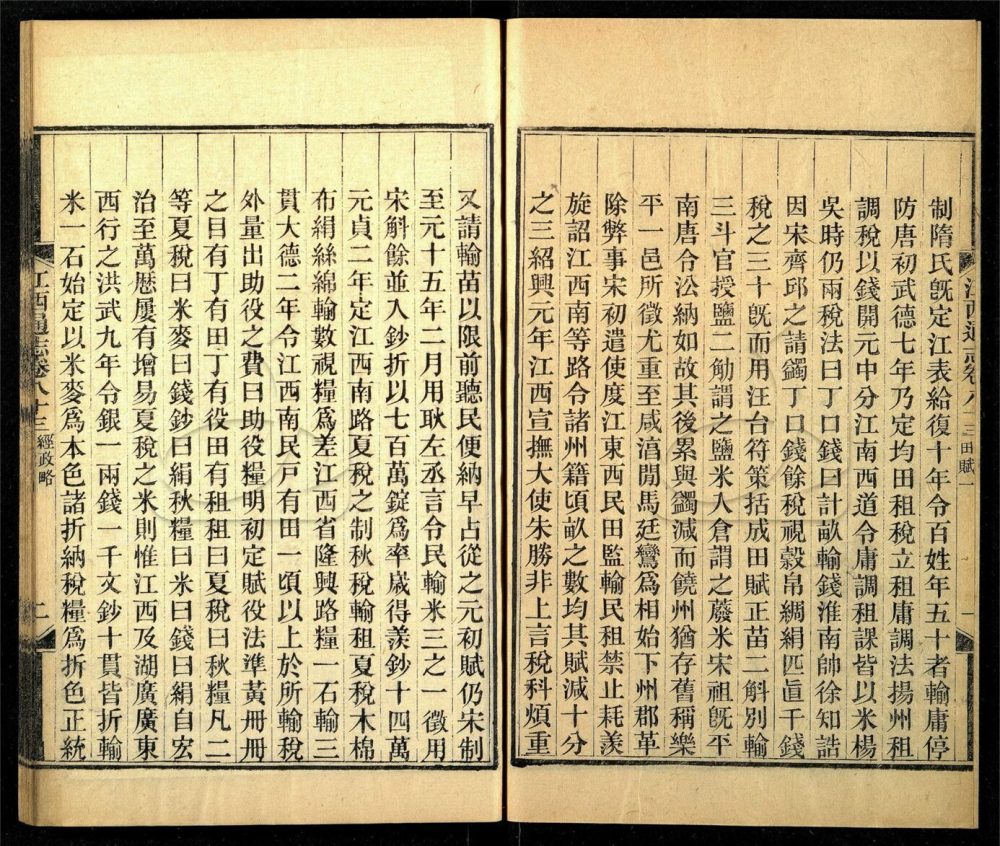 江西通志卷八十三 田賦一 一
制隋氏旣定江表給復十年令百姓年五十者輸庸停
防唐初武德七年乃定均田租稅立租庸調法揚州租
調稅以錢開元中分江南西道令庸調租課皆以米楊
吳時仍兩稅法曰丁口錢曰計畝輸錢淮南帥徐知誥
因宋齊邱之請蠲丁口錢餘稅視穀帛綢絹匹直千錢
稅之三十旣而用汪台符策括成田賦正苗二斛別輸
三斗官授鹽二觔謂之鹽米入倉謂之蘵米宋祖旣平
南唐令㳂納如故其後累與蠲減而饒州猶存舊稱樂
平一邑所徵尤重至咸湻閒馬廷鸞爲相始下州郡革
除弊事宋初遣使度江東西民田監輸民租禁止耗羨
旋詔江西南等路令諸州籍頃畝之數均其賦減十分
之三紹興元年江西宣撫大使朱勝非上言稅科煩重
又請輸苗以限前聽民便納早占從之元初賦仍宋制
至元十五年二月用耿左丞言令民輸米三之一徵用
宋斛餘並入鈔折以七百萬錠爲率歲得羨鈔十四萬
元貞二年定江西南路夏稅之制秋稅輸租夏稅木棉
布絹絲綿輸數視糧爲差江西省隆興路糧一石輸三
貫大德二年令江西南民戸有田一頃以上於所輸稅
外量出助役之費曰助役糧明初定賦役法準黃冊冊
之目有丁有田丁有役田有租租曰夏稅曰秋糧凡二
等夏稅曰米麥曰錢鈔曰絹秋糧曰米曰錢曰絹自宏
治至萬歷屢有增易夏稅之米則惟江西及湖廣廣東
西行之洪武九年令銀一兩錢一千文鈔十貫皆折輸
米一石始定以米麥爲本色諸折納稅糧爲折色正統
江西通志卷八十三 經政略 二